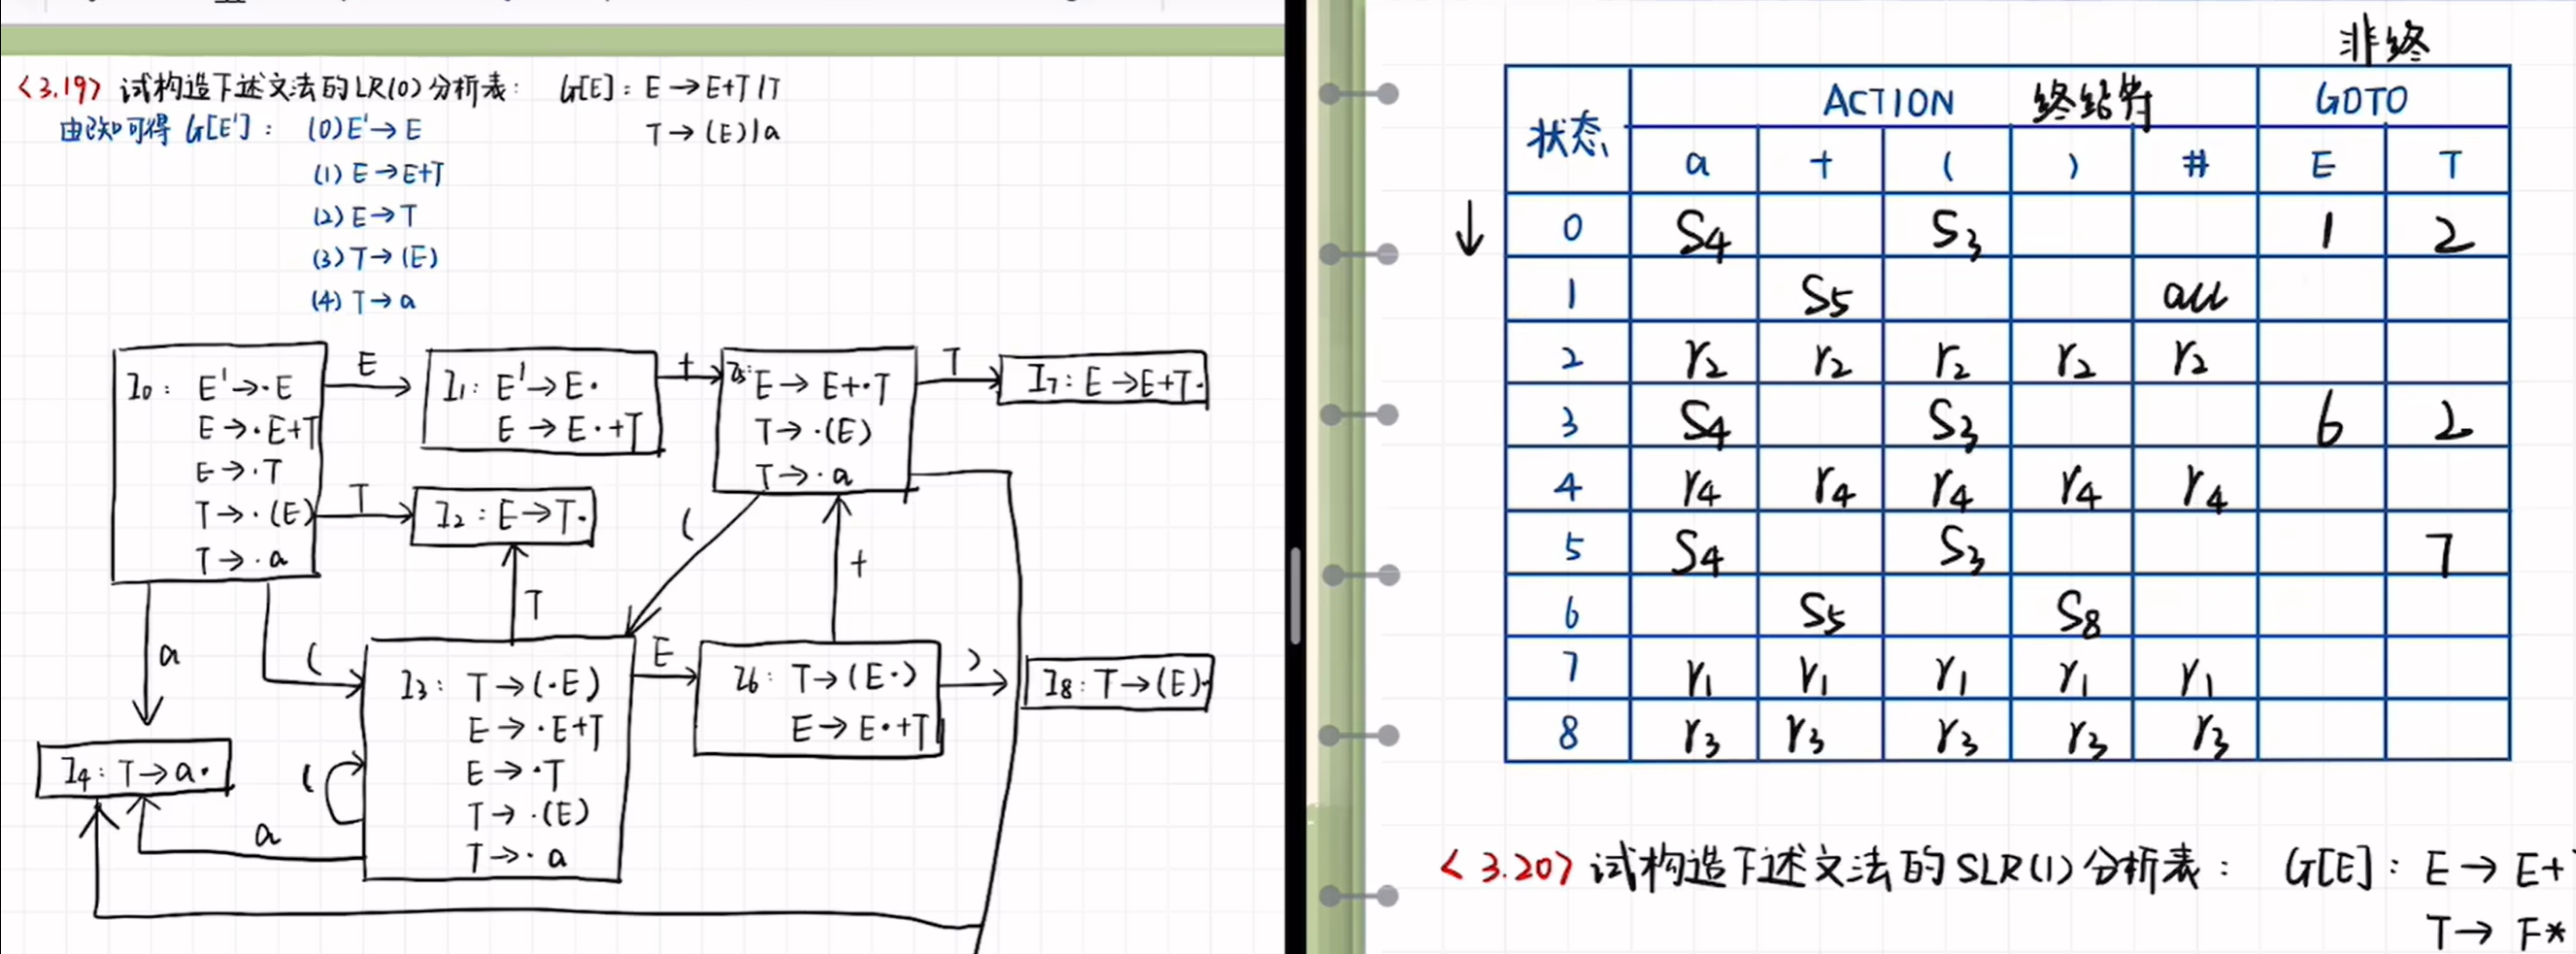 <3.19> 试构造下述文法的LR(0)分析表: G[E]: E→E+T|T
T→(E)|a
由已知可得 G[E']: (0)E'→E
(1) E→E+T
(2) E→T
(3) T→(E)
(4) T→a
I0: E'→·E
E→·E+T
E→·T
T→·(E)
T→·a
E
I1: E'→E·
E→E·+T
+
I5: E→E+·T
T→·(E)
T→·a
T
I7: E→E+T·
T
I2: E→T·
(
T
+
a
(
I3: T→(·E)
E→·E+T
E→·T
T→·(E)
T→·a
E
I6: T→(E·)
E→E·+T
)
I8: T→(E)·
I4: T→a·
(
a
非终
状态 ACTION 终结符 GOTO
a + ( ) # E T
↓ 0 S4 S3 1 2
1 S5 acc
2 r2 r2 r2 r2 r2
3 S4 S3 6 2
4 r4 r4 r4 r4 r4
5 S4 S3 7
6 S5 S8
7 r1 r1 r1 r1 r1
8 r3 r3 r3 r3 r3
<3.20> 试构造下述文法的SLR(1)分析表: G[E]: E→E+
T→F*